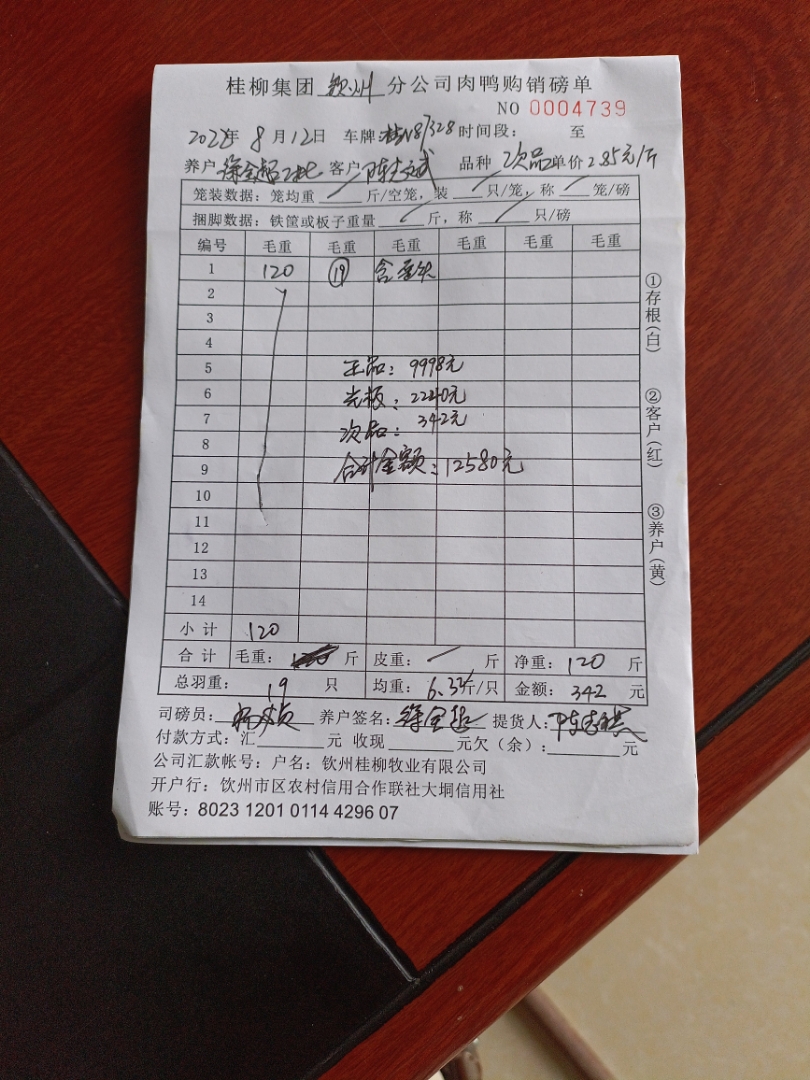 桂柳集团 钦州 分公司肉鸭购销磅单
NO 0004739
8月12日 车牌: 时间段: 至
养户 徐全超 客户 品种 次品 单价 2.85元/斤
笼装数据: 笼均重 斤/空笼, 装 只/笼, 称 笼/磅
捆脚数据: 铁筐或板子重量 斤, 称 只/磅
编号 毛重 毛重 毛重 毛重 毛重 毛重
1 120 ⑲ 含
2
3
4
5
正品: 9998元
6
光板: 2240元
7
次品: 342元
8
合计金额: 12580元
9
10
11
12
13
14
小计 120
合计 毛重: 斤 皮重: 斤 净重: 120 斤
总羽重: 19 只 均重: 6.32斤/只 金额: 342 元
司磅员: 养户签名: 徐全超 提货人:
付款方式: 汇 元 收现 元欠(余): 元
公司汇款帐号: 户名: 钦州桂柳牧业有限公司
开户行: 钦州市区农村信用合作联社大垌信用社
账号: 8023 1201 0114 4296 07
①存根(白)
②客户(红)
③养户(黄)